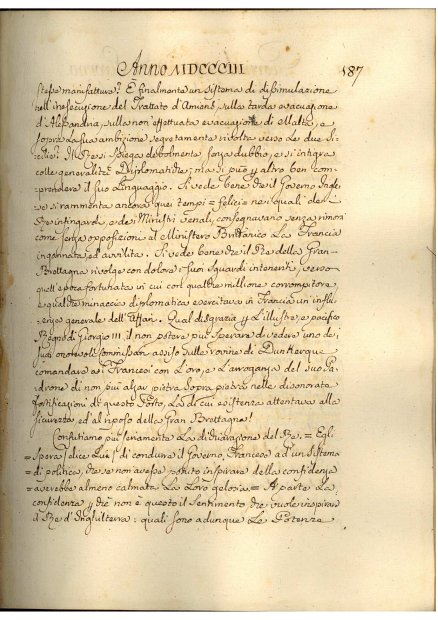 Anno MDCCCIII 187
stesse manifatture? E finalmente un sistema di dissimulazione
nell'inesecuzione del Trattato d'Amiens, sulla tarda evacuazione
d'Alessandria, sulla non effettuata evacuazione di Malta, e
sopra la sua ambizione segretamente rivolta verso le due Si-
cilie. Il Re si spiega debolmente senza dubbio, e si intriga
colle generalità Diplomatiche; ma si può p altro ben com-
prendere il suo linguaggio. Si vede bene che il Governo Ingle-
se si rammenta ancora quei tempi = felici = ne' quali dei
Re infingardi, e dei Ministri venali, consegnavano senza rimorsi
come senza opposizioni al Ministero Brittanico La Francia
ingannata, ed avvilita. Si vede bene che il Re della Gran-
Brettagna rivolge con dolore i suoi sguardi inteneriti, verso
quell'epoca fortunata in cui con qualche millione corrompitore,
e qualche minaccia diplomatica esercitava in Francia un influ-
enza generale dell'Affari. Qual disgrazia p L'illustre, e pacifico
Regno di Giorgio III. il non potere più sperare di vedere uno de'
suoi onorevoli Commissari assiso sulle rovine di Dunkerque
comandare ai Francesi con L'oro, e L'arroganza del suo Pa-
drone di non più alzar pietra sopra pietra nelle disonorate
fortificazioni di questo Posto, La di cui esistenza attentava alla
sicurezza ed al riposo della Gran Brettagna!
Confutiamo più seriamente La dichiarazione del Re. = Egli
= Spera (dice Lui) di condurre il Governo Francese ad un sistema
= di politica, che se non avesse potuto inspirare della confidenza
= averebbe almeno calmata La Loro gelosia = A parte La
confidenza, p che non è questo il sentimento che vuole inspirare
il Re d'Inghilterra: quali sono adunque Le Potenze